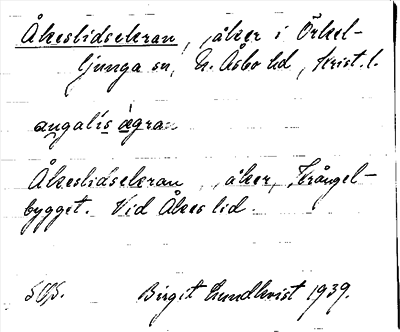 Åkeslidsekran, åker i Örkel-
ljunga sn, N. Åsbo hd, Krist. l.
angalis ägran
Åkeslidsekran, åker, Krångel-
bygget. Vid Åkes lid.
Birgit Lundkvist 1939.